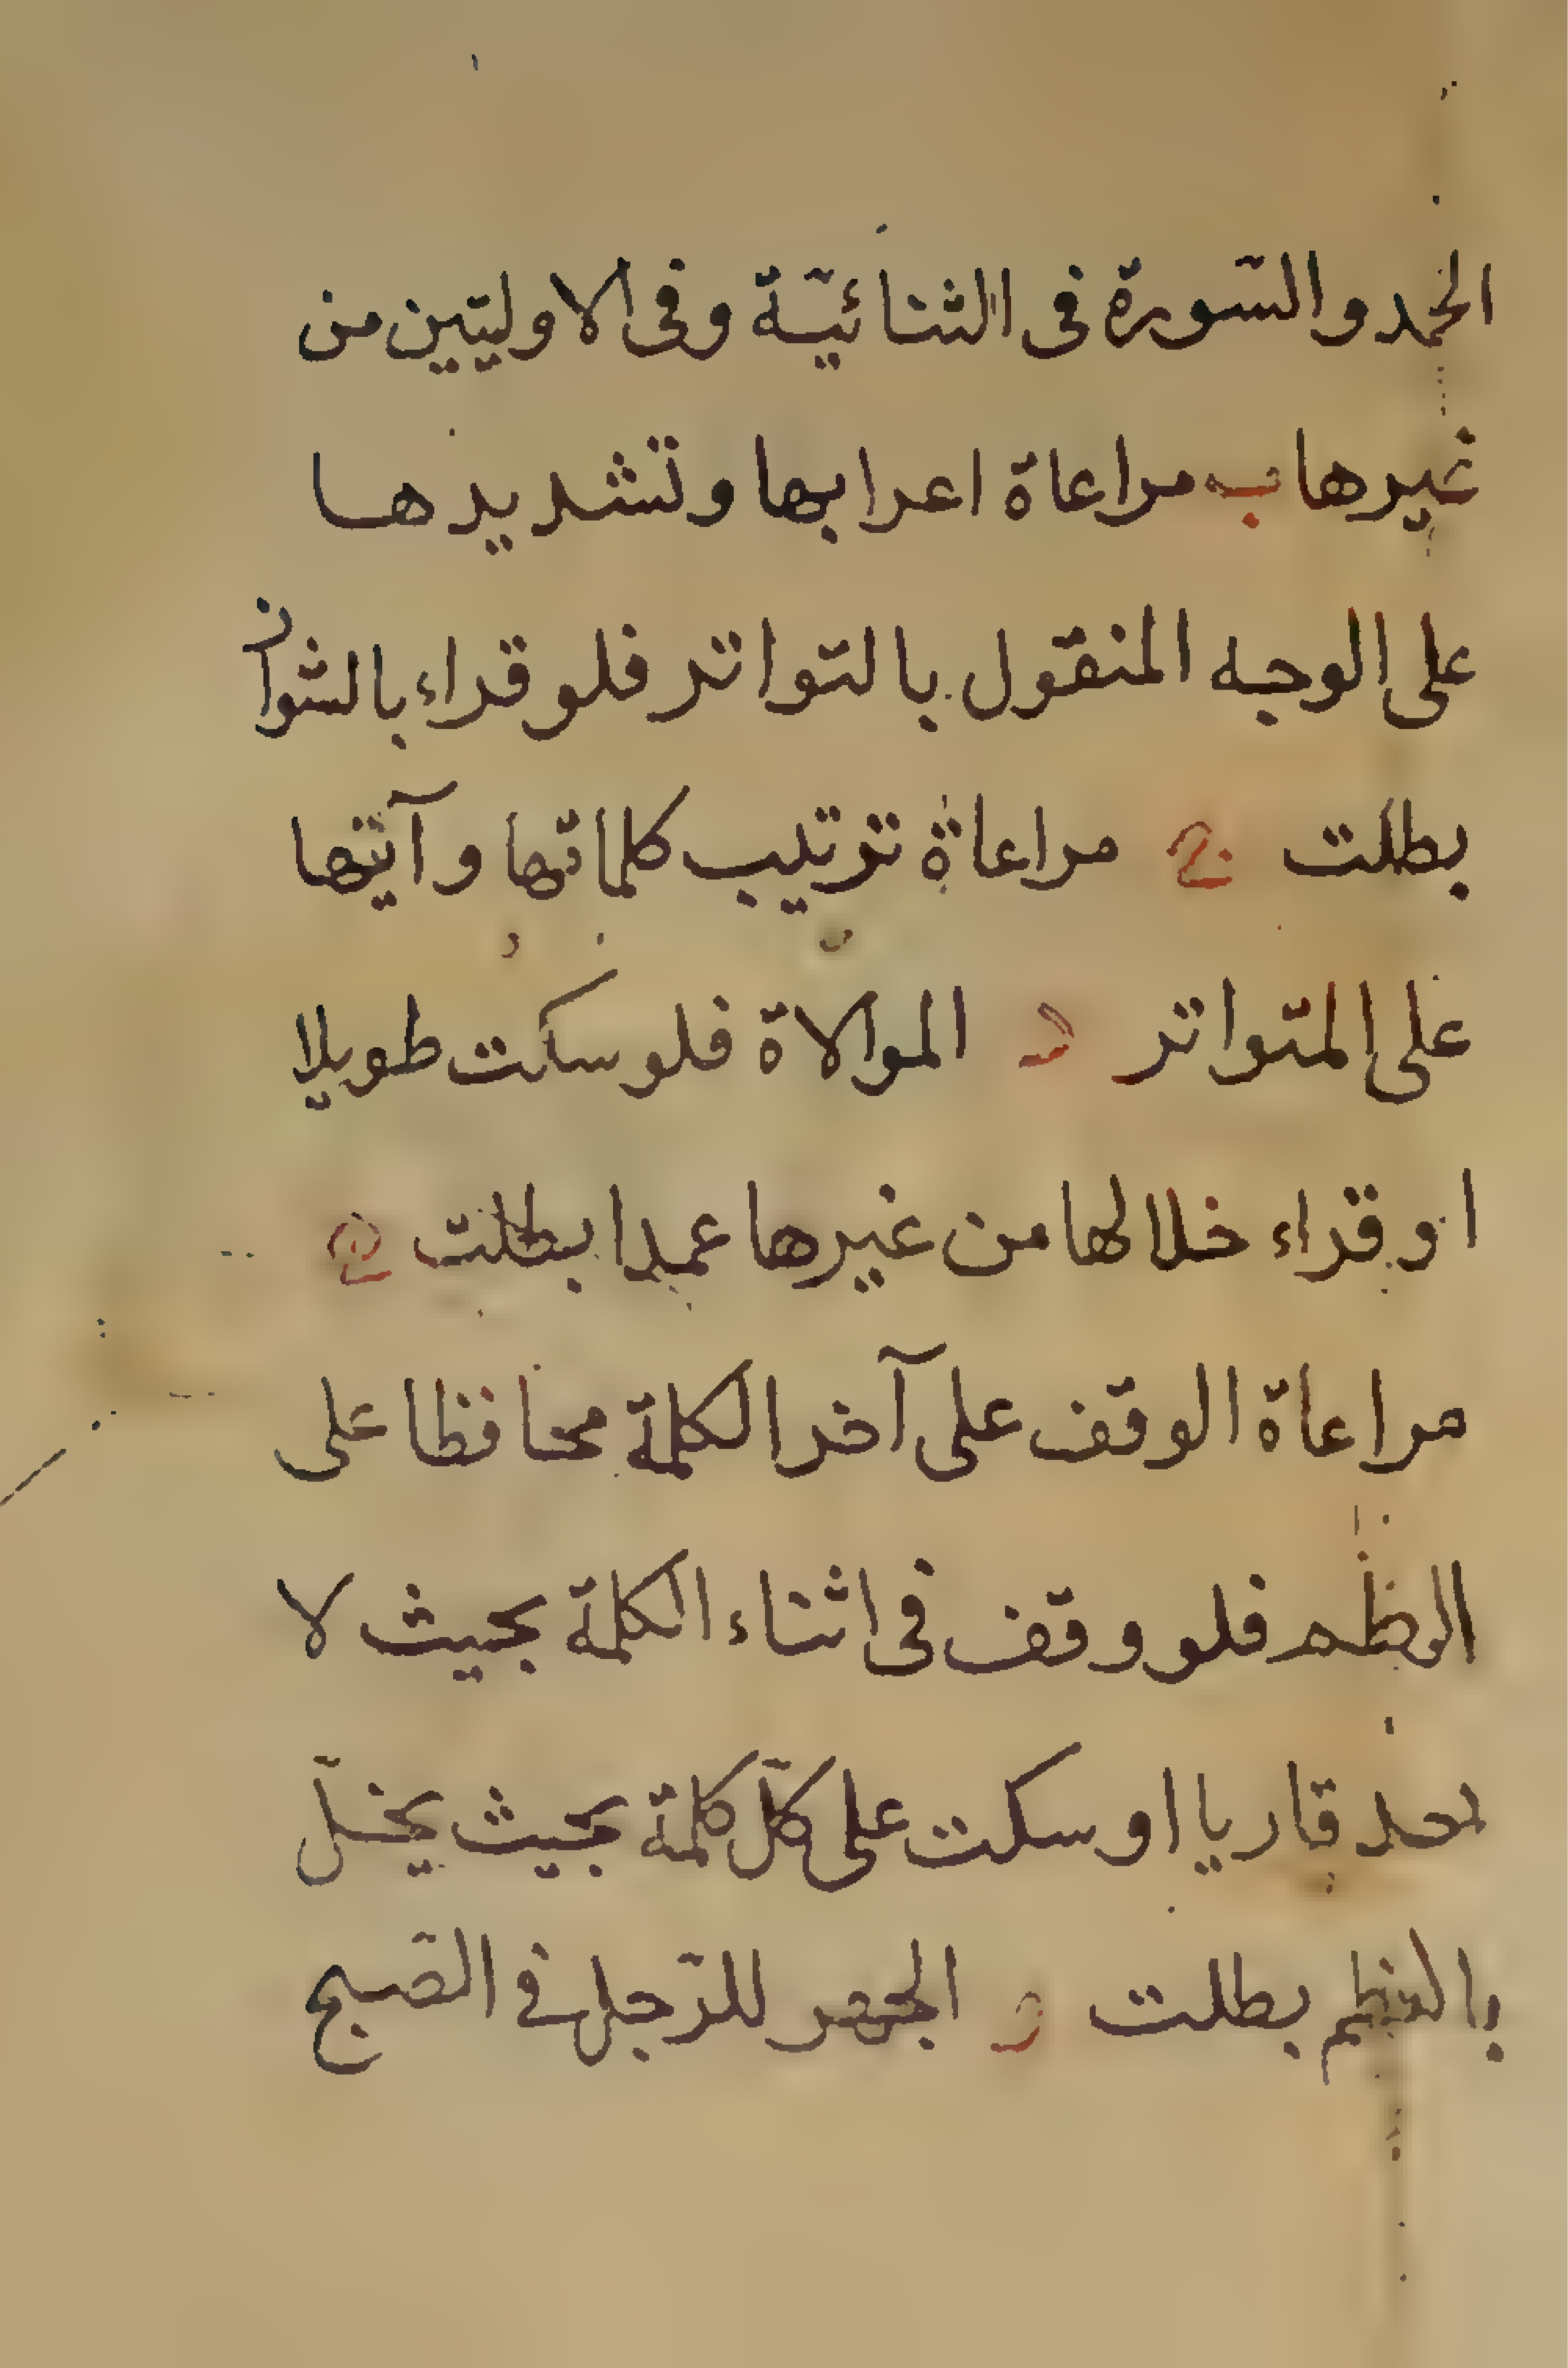 الحمد والسّورة فى الثنائيّة وفى الاوليّين من
غيرها ب مراعاة اعرابها وتشديدها
على الوجه المنقول بالتواتر فلو قراء بالشواذ
بطلت ج مراعاة ترتيب كلماتها وآيتها
على المتواتر د الموالاة فلو سكت طويلا
او قراء خلالها من غيرها عمدا بطلت ه
مراعاة الوقف على آخر الكلمة محافظا على
النظم فلو وقف فى اثناء الكلمة بحيث لا
يعد قاريا او سكت على كلّ كلمة بحيث يخلّ
بالنظم بطلت و الجهر للرّجل فى الصّبح